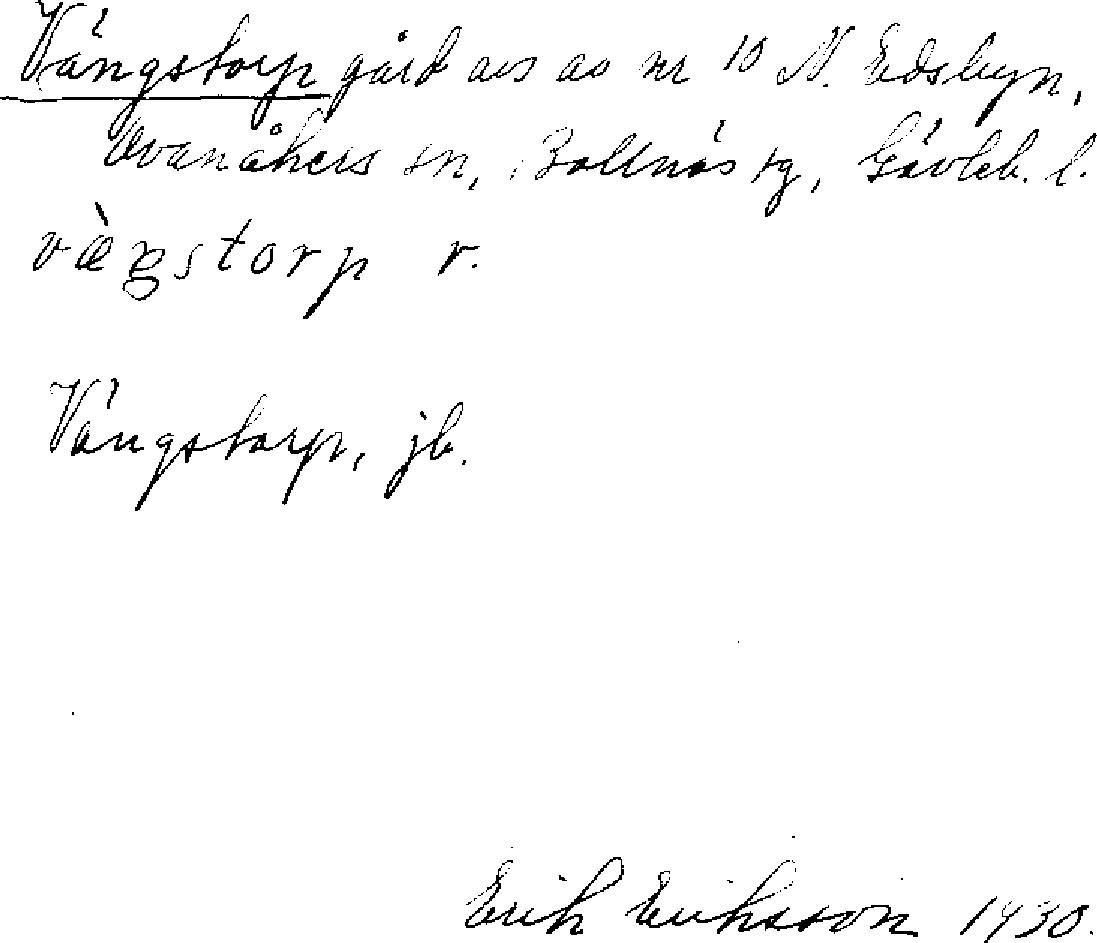 Vängstorp gård avs av nr 10 N. Edsbyn,
Ovanåkers sn, Bollnäs tg, Gävleb. l.
væ̀ŋstorp r.
Vängstorp, jb.
Erik Eriksson 1930.